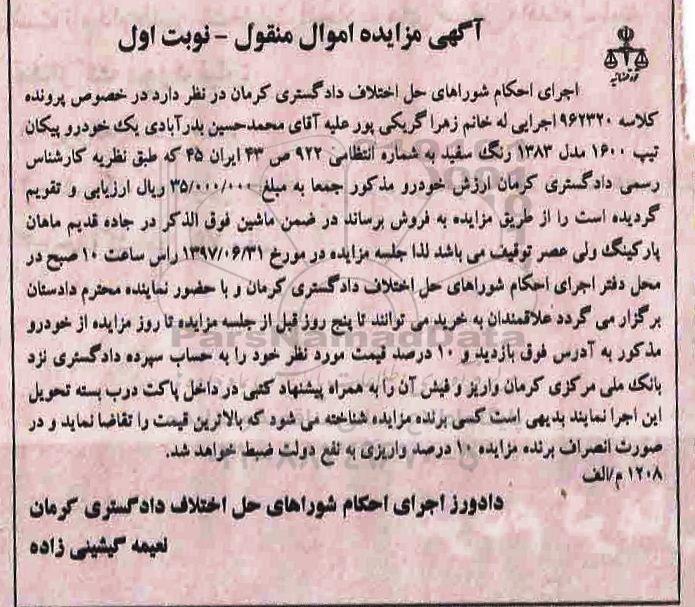 آگهی مزایده اموال منقول - نوبت اول
قوه قضائیه
اجرای احکام شوراهای حل اختلاف دادگستری کرمان در نظر دارد در خصوص پرونده
کلاسه ۹۶۲۳۲۰ اجرایی له خانم زهرا گریکی پور علیه آقای محمدحسین بدرآبادی یک خودرو پیکان
تیپ ۱۶۰۰ مدل ۱۳۸۳ رنگ سفید به شماره انتظامی ۹۲۲ ص ۴۳ ایران ۴۵ که طبق نظریه کارشناس
رسمی دادگستری کرمان ارزش خودرو مذکور جمعا به مبلغ ۳۵/۰۰۰/۰۰۰ ریال ارزیابی و تقویم
گردیده است را از طریق مزایده به فروش برساند در ضمن ماشین فوق الذکر در جاده قدیم ماهان
پارکینگ ولی عصر توقیف می باشد لذا جلسه مزایده در مورخ ۱۳۹۷/۰۶/۳۱ راس ساعت ۱۰ صبح در
محل دفتر اجرای احکام شوراهای حل اختلاف دادگستری کرمان و با حضور نماینده محترم دادستان
برگزار می گردد علاقمندان به خرید می توانند تا پنج روز قبل از جلسه مزایده تا روز مزایده از خودرو
مذکور به آدرس فوق بازدید و ۱۰ درصد قیمت مورد نظر خود را به حساب سپرده دادگستری نزد
بانک ملی مرکزی کرمان واریز و فیش آن را به همراه پیشنهاد کتبی در داخل پاکت درب بسته تحویل
این اجرا نمایند بدیهی است کسی برنده مزایده شناخته می شود که بالاترین قیمت را تقاضا نماید و در
صورت انصراف برنده مزایده ۱۰ درصد واریزی به نفع دولت ضبط خواهد شد.
۱۲۰۸ م/الف
دادورز اجرای احکام شوراهای حل اختلاف دادگستری کرمان
نعیمه گیشینی زاده
ParsNamadData